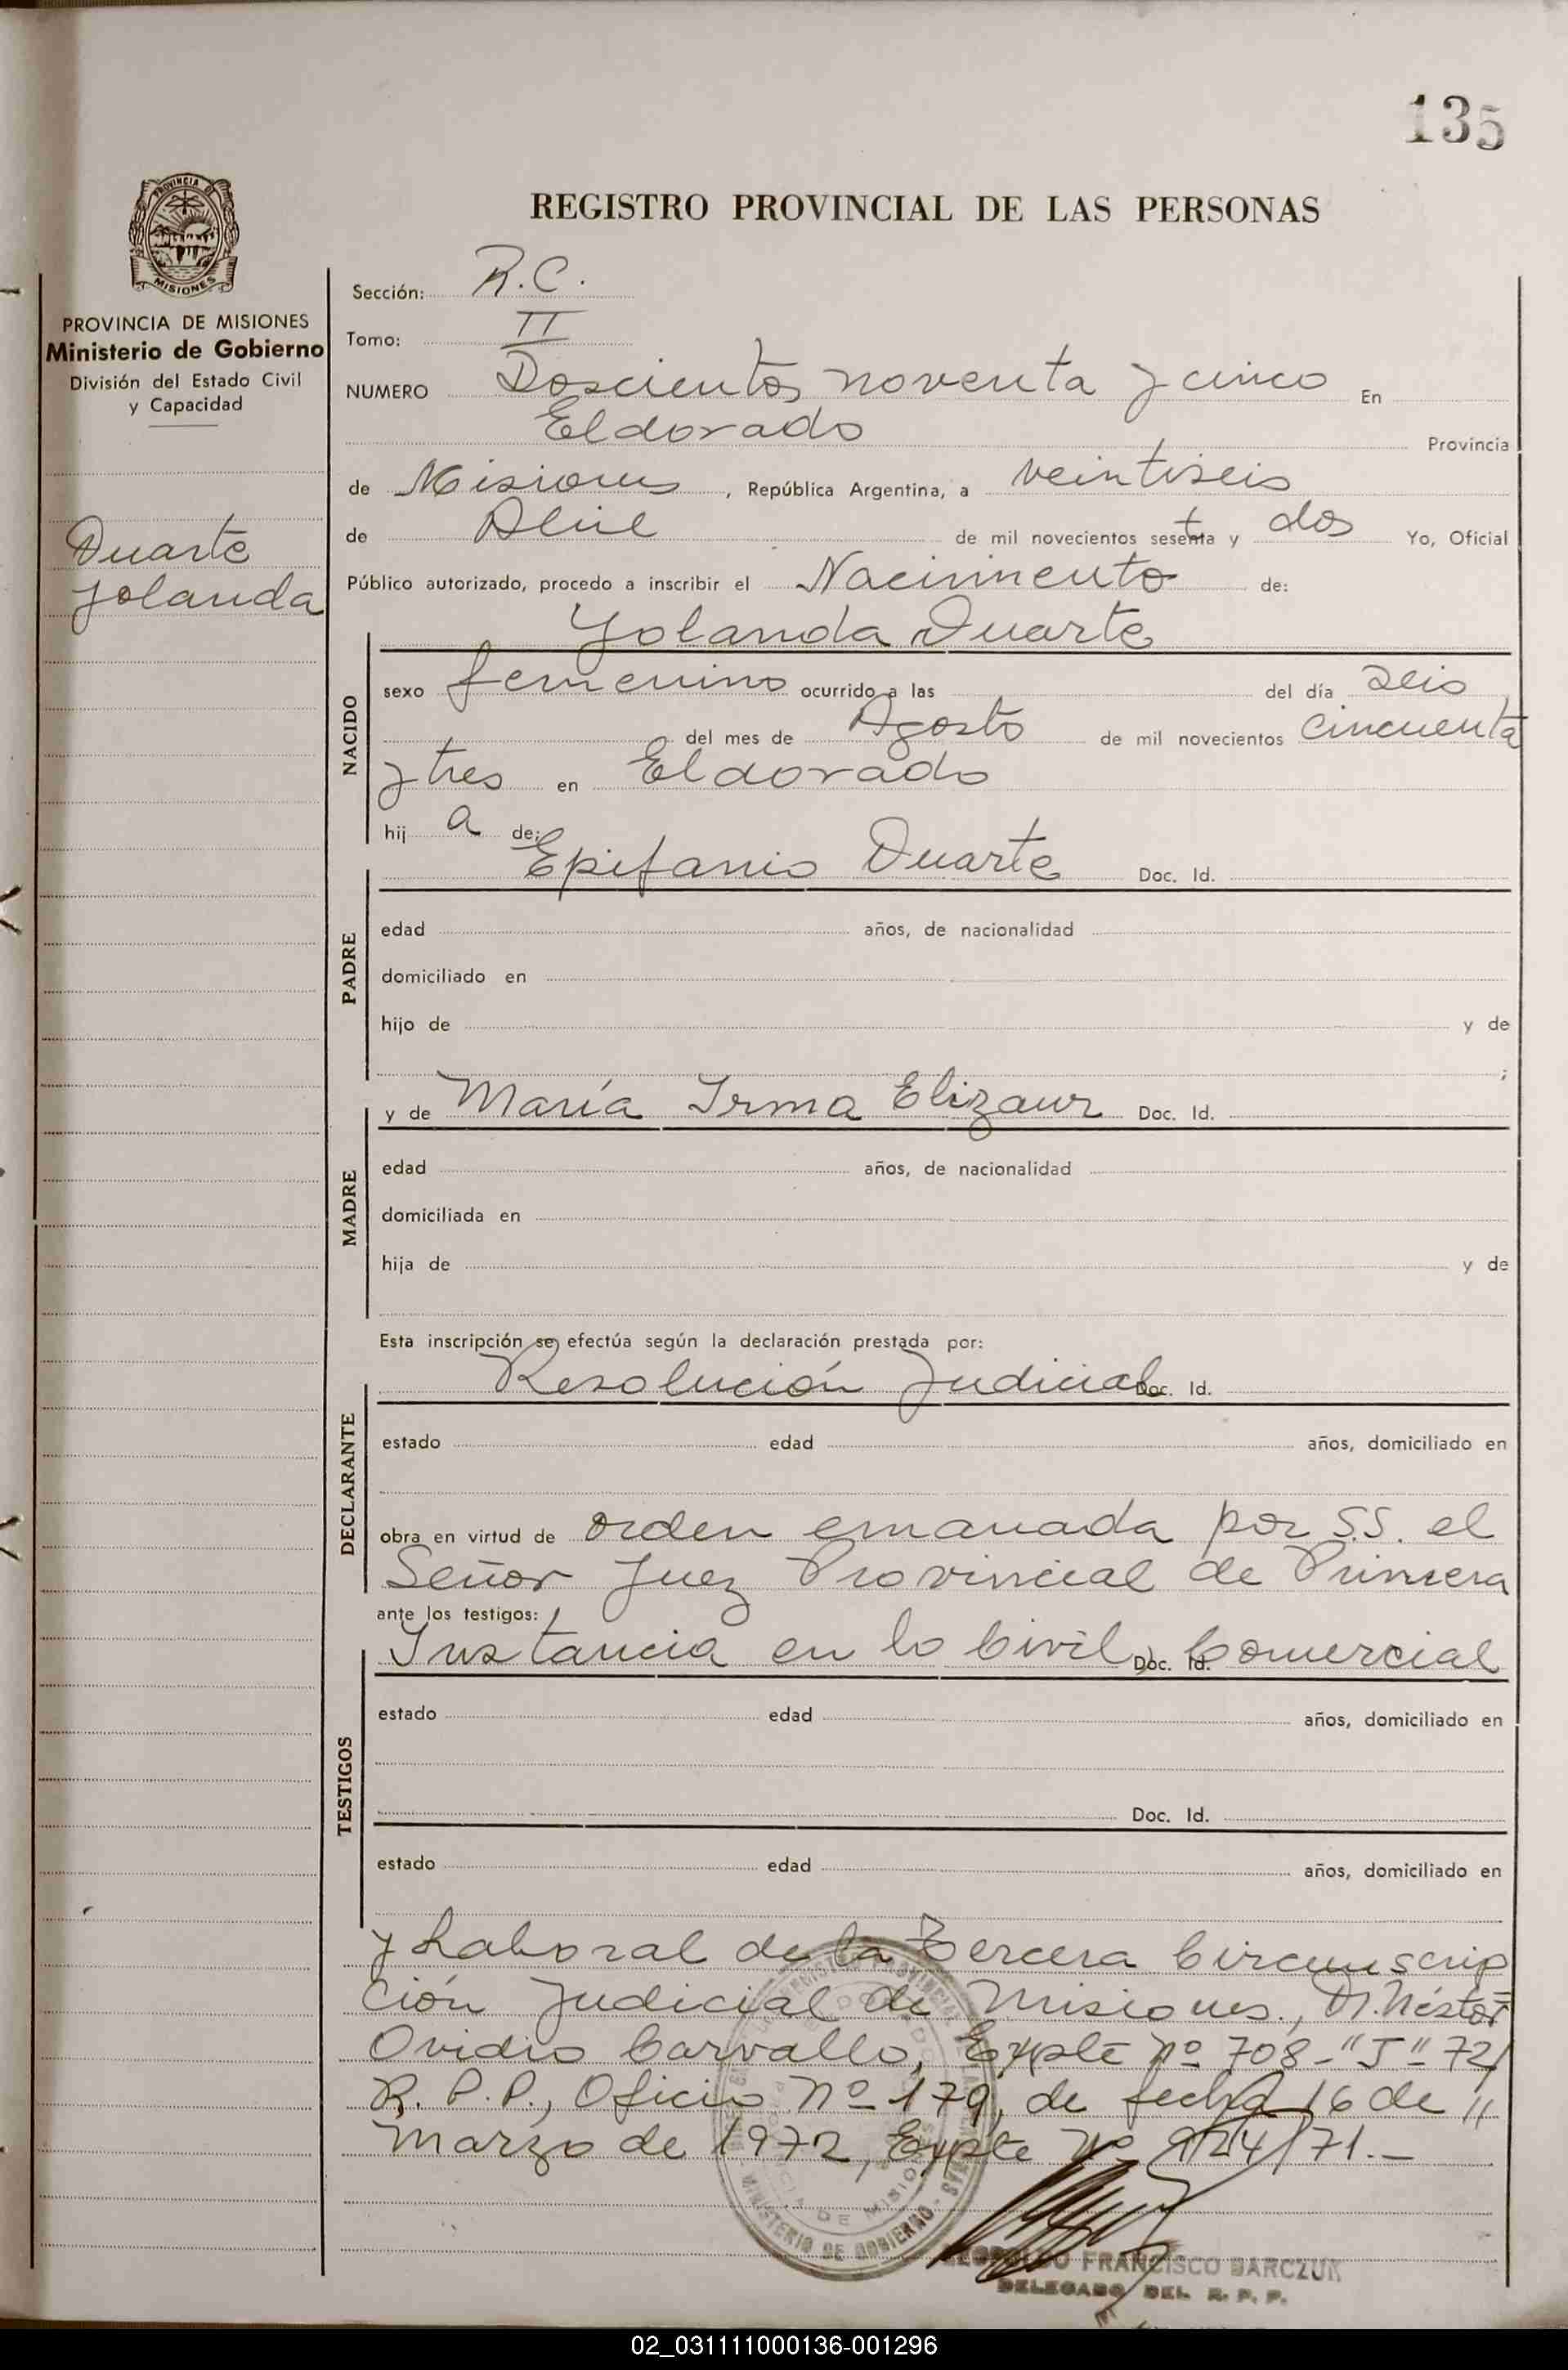 135
PROVINCIA DE
MISIONES
PROVINCIA DE MISIONES
Ministerio de Gobierno
División del Estado Civil
y Capacidad
Duarte
Yolanda
REGISTRO PROVINCIAL DE LAS PERSONAS
Sección: R.C.
Tomo: II
NUMERO Doscientos noventa y cinco En
Eldorado Provincia
de Misiones, República Argentina, a veintiseis
de Abril de mil novecientos setenta y dos Yo, Oficial
Público autorizado, procedo a inscribir el Nacimiento de:
Yolanda Duarte
NACIDO
sexo femenino ocurrido a las del día seis
del mes de Agosto de mil novecientos cincuenta
y tres en Eldorado
hij a de:
Epifanio Duarte Doc. Id.
PADRE
edad años, de nacionalidad
domiciliado en
hijo de y de
;
y de María Irma Elizaur Doc. Id.
MADRE
edad años, de nacionalidad
domiciliada en
hija de y de
Esta inscripción se efectúa según la declaración prestada por:
Resolución Judicial Doc. Id.
DECLARANTE
estado edad años, domiciliado en
obra en virtud de orden emanada por S.S. el
Señor Juez Provincial de Primera
ante los testigos:
Instancia en lo Civil, Comercial Doc. Id.
TESTIGOS
estado edad años, domiciliado en
Doc. Id.
estado edad años, domiciliado en
y Laboral de la Tercera Circunscrip
ción Judicial de Misiones, Dr. Néstor
Ovidio Carvallo, Expte nº 708-"J"-72/
R.P.P., Oficio nº 179, de fecha 16 de "
marzo de 1972, Expte nº 924/71.-
MINISTERIO DE GOBIERNO
DE MISIONES
LEOPOLDO FRANCISCO BARCZUK
DELEGADO DEL R. P. P.
02_031111000136-001296